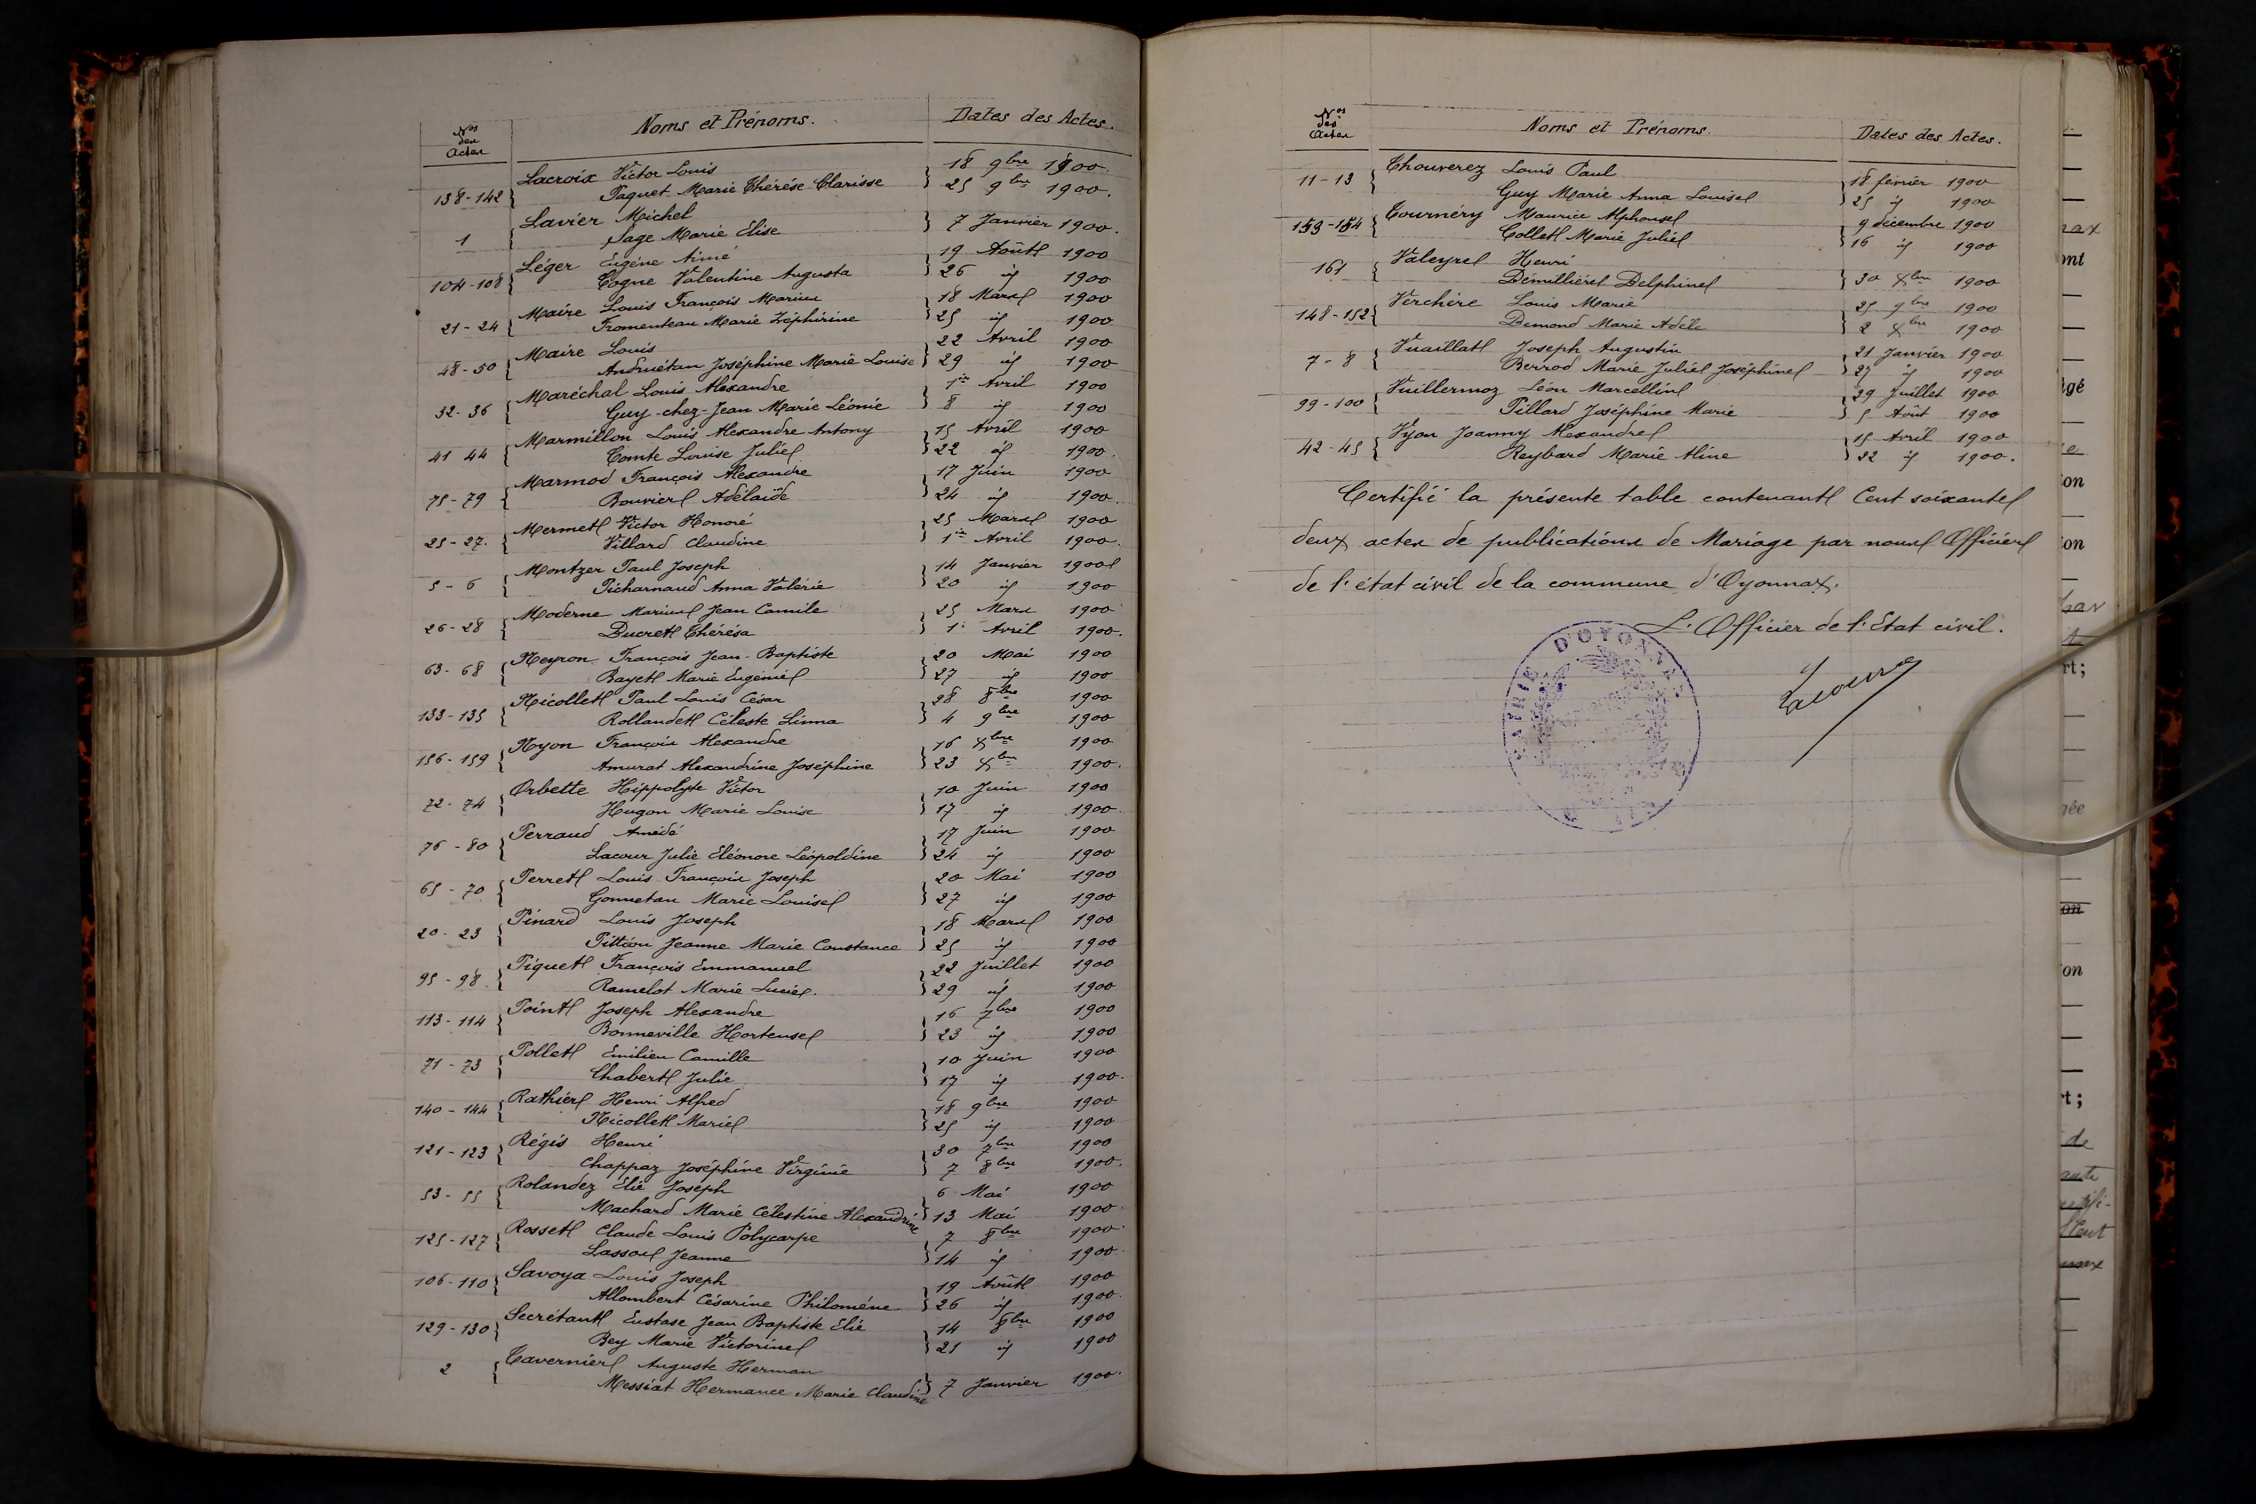 Nos des Actes Noms et Prénoms. Dates des Actes.
138-142 Lacroix Victor Louis 18 9bre 1900
Paquet Marie Thérèse Clarisse 25 9bre 1900.
1 Lavier Michel
Sage Marie Elise 7 Janvier 1900.
104-108 Léger Eugène Aimé 19 Août 1900
Cogne Valentine Augusta 26 id 1900
21-24 Maire Louis François Marius 18 Mars 1900
Fromenteau Marie Zéphirine 25 id 1900
48-50 Maire Louis 22 Avril 1900
Andruétan Joséphine Marie Louise 29 id 1900
32-36 Maréchal Louis Alexandre 1er Avril 1900
Guy-chez-Jean Marie Léonie 8 id 1900
41 44 Marmillon Louis Alexandre Antony 15 Avril 1900
Comte Louise Julie 22 id 1900.
75-79 Marmod François Alexandre 17 Juin 1900
Bouvier Adélaïde 24 id 1900
25-27. Mermet Victor Honoré 25 Mars 1900
Villard Claudine 1er Avril 1900.
5-6 Montzer Paul Joseph 14 Janvier 1900
Picharnaud Anna Valérie 20 id 1900
26-28 Moderne Marius Jean Camile 25 Mars 1900
Ducret Thérésa 1er Avril 1900.
63-68 Neyron François Jean-Baptiste 20 Mai 1900
Bayet Marie Eugénie 27 id 1900
133-135 Nicollet Paul Louis César 28 8bre 1900
Rollandet Céleste Linna 4 9bre 1900
156-159 Nyon François Alexandre 16 Xbre 1900
Amurat Alexandrine Joséphine 23 Xbre 1900.
72-74 Orbette Hippolyte Victor 10 Juin 1900
Hugon Marie Louise 17 id 1900
76-80 Perraud Amédé 17 Juin 1900
Lacour Julie Eléonore Léopoldine 24 id 1900
65-70 Perret Louis François Joseph 20 Mai 1900
Gonnetan Marie Louise 27 id 1900
20-23 Pinard Louis Joseph 18 Mars 1900
Pittion Jeanne Marie Constance 25 id 1900
95-98 Piquet François Emmanuel 22 Juillet 1900
Ramelot Marie Lucie. 29 id 1900
113-114 Point Joseph Alexandre 16 7bre 1900
Bonneville Hortense 23 id 1900
71-73 Pollet Emilien Camille 10 Juin 1900
Chabert Julie 17 id 1900.
140-144 Rathier Henri Alfred 18 9bre 1900
Nicollet Marie 25 id 1900
121-123 Régis Henri 30 7bre 1900
Chappaz Joséphine Virginie 7 8bre 1900.
53-55 Rolandez Elie Joseph 6 Mai 1900
Machard Marie Célestine Alexandrine 13 Mai 1900
125-127 Rosset Claude Louis Polycarpe 7 8bre 1900
Lassoul Jeanne 14 id 1900
106-110 Savoya Louis Joseph 19 Août 1900
Allombert Césarine Philomène 26 id 1900
129-130 Secrétant Eustase Jean Baptiste Elie 14 8bre 1900
Bey Marie Victorine 21 id 1900
2 Tavernier Auguste Herman
Messiat Hermance Marie Claudine 7 Janvier 1900.
Nos des Actes Noms et Prénoms. Dates des Actes.
11-13 Thouverez Louis Paul 18 février 1900
Guy Marie Anna Louise 25 id 1900
153-154 Tournéry Maurice Alphonse 9 décembre 1900
Collet Marie Julie 16 id 1900
161 Valeyre Henri
Démillière Delphine 30 Xbre 1900
148-152 Verchère Louis Marie 25 9bre 1900
Demond Marie Adèle 2 Xbre 1900
7-8 Vuaillat Joseph Augustin 21 Janvier 1900
Berrod Marie Julie Joséphine 27 id 1900
99-100 Vuillermoz Léon Marcellin 29 Juillet 1900
Pillard Joséphine Marie 5 Août 1900
42-45 Vyon Joanny Alexandre 15 Avril 1900
Reybard Marie Aline 22 id 1900.
Certifié la présente table contenant Cent soixante
deux actes de publications de Mariage par nous Officier
de l'état civil de la commune d'Oyonnax.
L'Officier de l'Etat civil.
Lacour
MAIRIE D'OYONNAX
ont
gé
ion
ion
rt;
née
on
ion
rt;
de